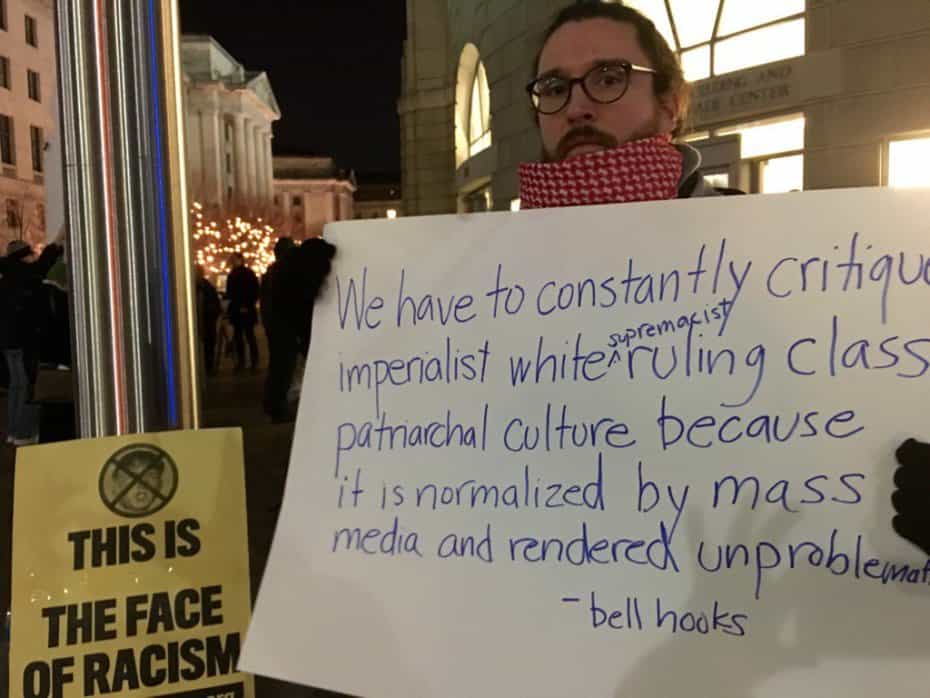 We have to constantly critique
imperialist white supremacist ruling class
patriarchal culture because
it is normalized by mass
media and rendered unproblemat
- bell hooks
THIS IS
THE FACE
OF RACISM